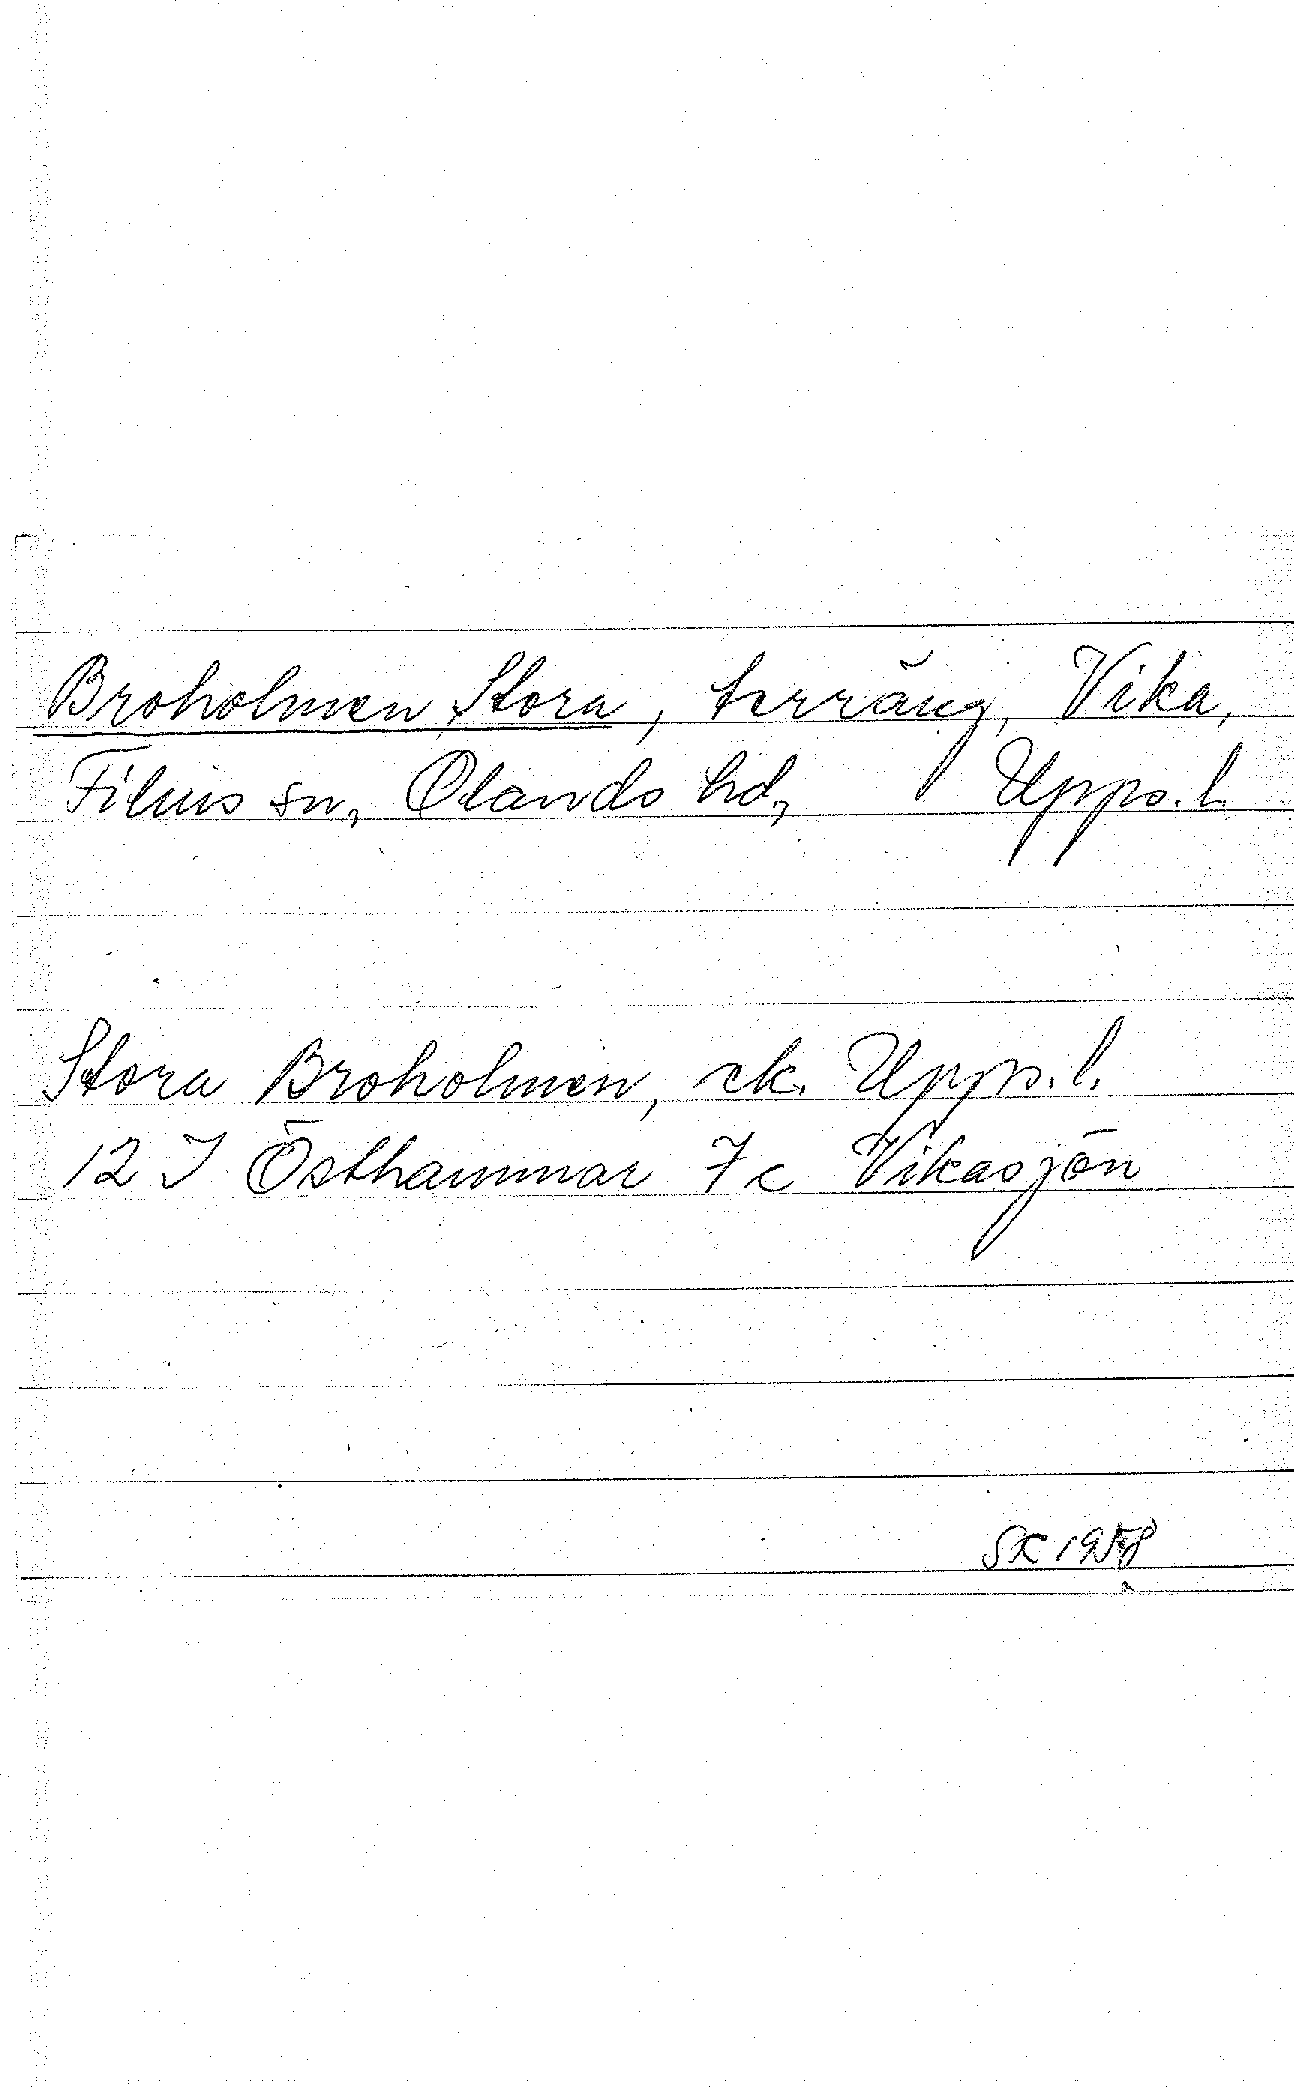 Broholmen, Stora, terräng, Vika,
Films sn, Olands hd, Upps. l.
Stora Broholmen, ek. Upps. l.
12 I Östhammar 7 c Vikasjön
SK 1958